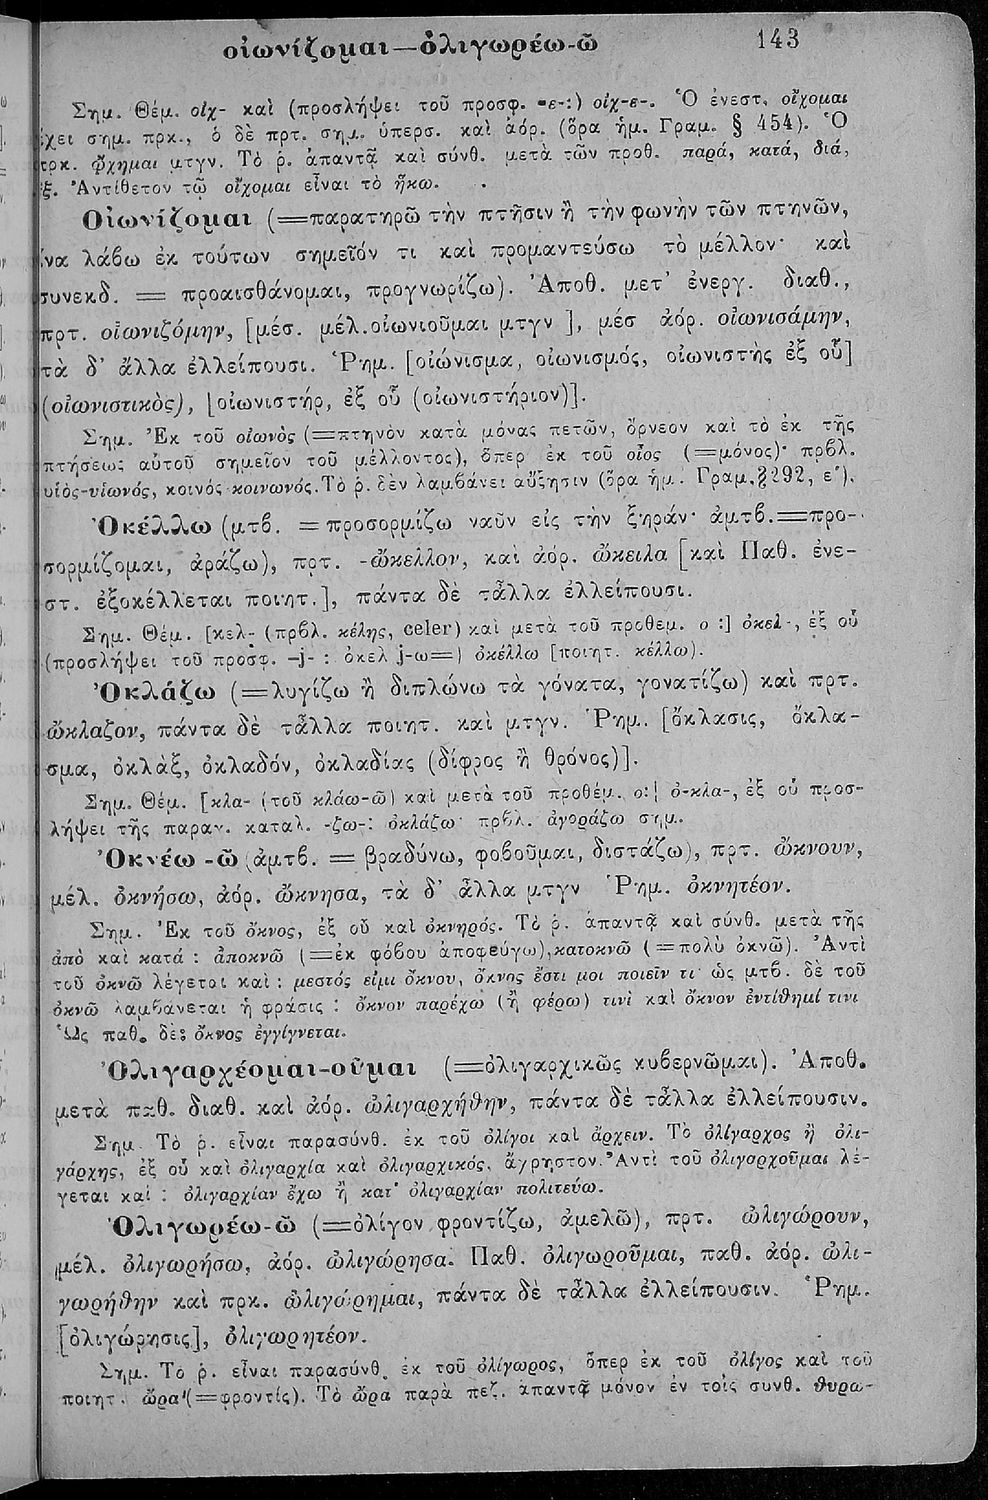 οἰωνίζομαι—ὀλιγωρέω-ῶ 143
Σημ. Θέμ. οἰχ- καὶ (προσλήψει τοῦ προσφ. -ε-:) οἰχ-ε-. Ὁ ἐνεστ. οἴχομαι
ἔχει σημ. πρκ., ὁ δὲ πρτ. σημ. ὑπερσ. καὶ ἀόρ. (ὅρα ἡμ. Γραμ. § 454). Ὁ
πρκ. ᾤχημαι μτγν. Τὸ ῥ. ἀπαντᾷ καὶ σύνθ. μετὰ τῶν προθ. παρά, κατά, διά,
ἐξ. Ἀντίθετον τῷ οἴχομαι εἶναι τὸ ἥκω.
Οἰωνίζομαι (=παρατηρῶ τὴν πτῆσιν ἢ τὴν φωνὴν τῶν πτηνῶν,
ἵνα λάβω ἐκ τούτων σημεῖόν τι καὶ προμαντεύσω τὸ μέλλον· καὶ
συνεκδ. = προαισθάνομαι, προγνωρίζω). Ἀποθ. μετ' ἐνεργ. διαθ.,
πρτ. οἰωνιζόμην, [μέσ. μέλ. οἰωνιοῦμαι μτγν ], μέσ ἀόρ. οἰωνισάμην,
τὰ δ' ἄλλα ἐλλείπουσι. Ῥημ. [οἰώνισμα, οἰωνισμός, οἰωνιστὴς ἐξ οὗ]
(οἰωνιστικὸς), [οἰωνιστήρ, ἐξ οὗ (οἰωνιστήριον)].
Σημ. Ἐκ τοῦ οἰωνὸς (=πτηνὸν κατὰ μόνας πετῶν, ὄρνεον καὶ τὸ ἐκ τῆς
πτήσεως αὐτοῦ σημεῖον τοῦ μέλλοντος), ὅπερ ἐκ τοῦ οἶος (=μόνος)· πρβλ.
υἱὸς-υἱωνός, κοινός-κοινωνός. Τὸ ῥ. δὲν λαμβάνει αὔξησιν (ὅρα ἡμ. Γραμ. § 292, ε').
Ὀκέλλω (μτβ. = προσορμίζω ναῦν εἰς τὴν ξηράν· ἀμτβ.=προ-
σορμίζομαι, ἀράζω), πρτ. -ὤκελλον, καὶ ἀόρ. ὤκειλα [καὶ Παθ. ἐνε-
στ. ἐξοκέλλεται ποιητ.], πάντα δὲ τἆλλα ἐλλείπουσι.
Σημ. Θέμ. [κελ- (πρβλ. κέλης, celer) καὶ μετὰ τοῦ προθεμ. ο :] ὀκελ-, ἐξ οὗ
(προσλήψει τοῦ προσφ. -j- : ὀκελ j-ω=) ὀκέλλω [ποιητ. κέλλω).
Ὀκλάζω (=λυγίζω ἢ διπλώνω τὰ γόνατα, γονατίζω) καὶ πρτ.
ὤκλαζον, πάντα δὲ τἆλλα ποιητ. καὶ μτγν. Ῥημ. [ὄκλασις, ὄκλα-
σμα, ὀκλάξ, ὀκλαδόν, ὀκλαδίας (δίφρος ἢ θρόνος)].
Σημ. Θέμ. [κλα- (τοῦ κλάω-ῶ) καὶ μετὰ τοῦ προθέμ. ο:] ὀ-κλα-, ἐξ οὗ προσ-
λήψει τῆς παραγ. καταλ. -ζω-: ὀκλάζω· πρβλ. ἀγοράζω σημ.
Ὀκνέω -ῶ (ἀμτβ. = βραδύνω, φοβοῦμαι, διστάζω), πρτ. ὤκνουν,
μέλ. ὀκνήσω, ἀόρ. ὤκνησα, τὰ δ' ἄλλα μτγν Ῥημ. ὀκνητέον.
Σημ. Ἐκ τοῦ ὄκνος, ἐξ οὗ καὶ ὀκνηρός. Τὸ ῥ. ἀπαντᾷ καὶ σύνθ. μετὰ τῆς
ἀπὸ καὶ κατά : ἀποκνῶ (=ἐκ φόβου ἀποφεύγω), κατοκνῶ (=πολὺ ὀκνῶ). Ἀντὶ
τοῦ ὀκνῶ λέγεται καὶ : μεστός εἰμι ὄκνου, ὄκνος ἔστι μοι ποιεῖν τι· ὡς μτβ. δὲ τοῦ
ὀκνῶ λαμβάνεται ἡ φράσις : ὄκνον παρέχω (ἢ φέρω) τινὶ καὶ ὄκνον ἐντίθημί τινι
Ὡς παθ. δὲ: ὄκνος ἐγγίγνεται.
Ὀλιγαρχέομαι-οῦμαι (=ὀλιγαρχικῶς κυβερνῶμαι). Ἀποθ.
μετὰ παθ. διαθ. καὶ ἀόρ. ὠλιγαρχήθην, πάντα δὲ τἆλλα ἐλλείπουσιν.
Σημ. Τὸ ῥ. εἶναι παρασύνθ. ἐκ τοῦ ὀλίγοι καὶ ἄρχειν. Τὸ ὀλίγαρχος ἢ ὀλι-
γάρχης, ἐξ οὗ καὶ ὀλιγαρχία καὶ ὀλιγαρχικός, ἄχρηστον. Ἀντὶ τοῦ ὀλιγαρχοῦμαι λέ-
γεται καὶ : ὀλιγαρχίαν ἔχω ἢ κατ' ὀλιγαρχίαν πολιτεύω.
Ὀλιγωρέω-ῶ (=ὀλίγον φροντίζω, ἀμελῶ), πρτ. ὠλιγώρουν,
μέλ. ὀλιγωρήσω, ἀόρ. ὠλιγώρησα. Παθ. ὀλιγωροῦμαι, παθ. ἀόρ. ὠλι-
γωρήθην καὶ πρκ. ὠλιγώρημαι, πάντα δὲ τἆλλα ἐλλείπουσιν. Ῥημ.
[ὀλιγώρησις], ὀλιγωρητέον.
Σημ. Τὸ ῥ. εἶναι παρασύνθ. ἐκ τοῦ ὀλίγωρος, ὅπερ ἐκ τοῦ ὀλίγος καὶ τοῦ
ποιητ. ὤρα (=φροντίς). Τὸ ὤρα παρὰ πεζ. ἀπαντᾷ μόνον ἐν τοῖς συνθ. θυρω-